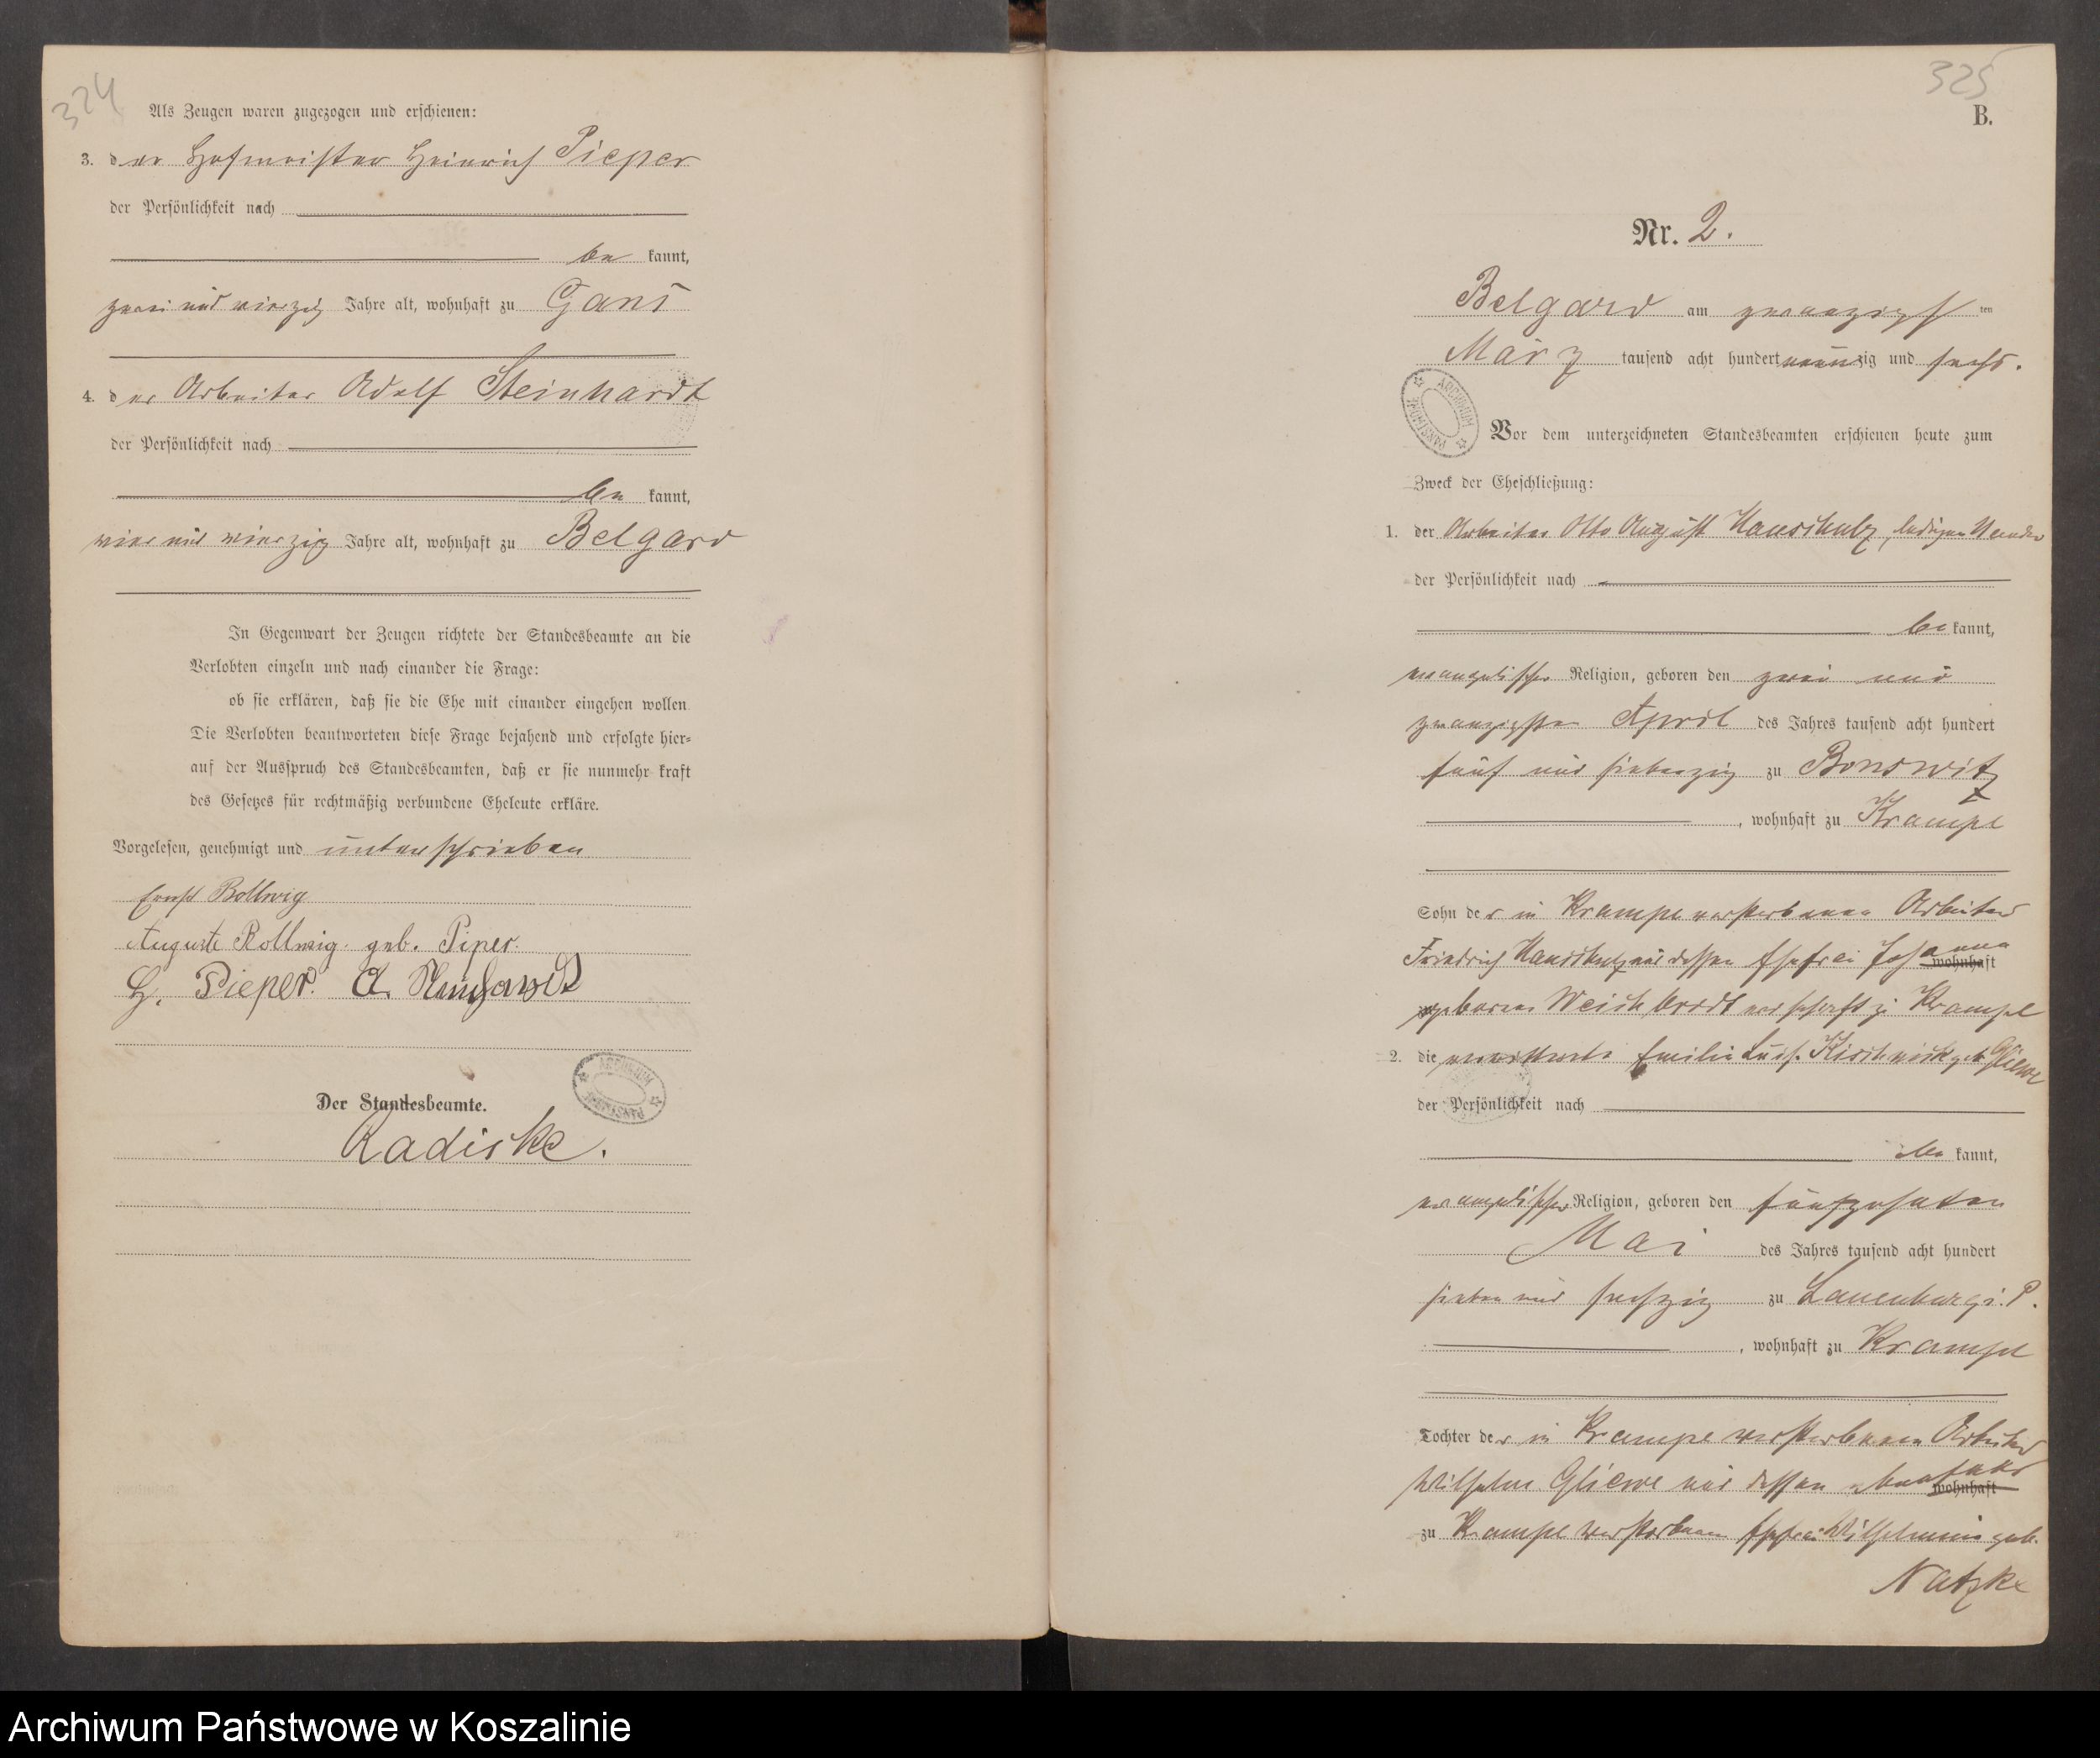 324
Als Zeugen waren zugezogen und erschienen:
3. der Hofmeister Heinrich Pieper
der Persönlichkeit nach
be kannt,
zwei und vierzig Jahre alt, wohnhaft zu Gans
4. der Arbeiter Adolf Steinhardt
der Persönlichkeit nach
be kannt,
vier und vierzig Jahre alt, wohnhaft zu Belgard
In Gegenwart der Zeugen richtete der Standesbeamte an die
Verlobten einzeln und nach einander die Frage:
ob sie erklären, daß sie die Ehe mit einander eingehen wollen.
Die Verlobten beantworteten diese Frage bejahend und erfolgte hier-
auf der Ausspruch des Standesbeamten, daß er sie nunmehr kraft
des Gesetzes für rechtmäßig verbundene Eheleute erkläre.
Vorgelesen, genehmigt und unterschrieben
Ernst Rollwig
Auguste Rollwig geb. Piper.
H. Pieper. A. Steinhardt
Der Standesbeamte.
Radiske.
325
B.
Nr. 2.
Belgard am zwanzigsten
März tausend acht hundert neunzig und sechs.
ARCHIWUM PAŃSTWOWE
Vor dem unterzeichneten Standesbeamten erschienen heute zum
Zweck der Eheschließung:
1. der Arbeiter Otto August Hauschulz, ledigen Standes
der Persönlichkeit nach
be kannt,
evangelischer Religion, geboren den zwei und
zwanzigsten April des Jahres tausend acht hundert
fünf und siebenzig zu Bonswitz
, wohnhaft zu Krampe
Sohn der in Krampe verstorbenen Arbeiter
Friedrich Hauschulz und dessen Ehefrau Johanna
wohnhaft
geborene Weichbrodt wohnhaft zu Krampe
2. die verwittwete Emilie Luise Kischnick geb. Gliewe
der Persönlichkeit nach
be kannt,
evangelischer Religion, geboren den fünfzehnten
Mai des Jahres tausend acht hundert
sieben und sechzig zu Lauenburg i. P.
, wohnhaft zu Krampe
Tochter der in Krampe verstorbenen Arbeiter
Wilhelm Gliewe und dessen ebendaer
wohnhaft
zu Krampe verstorbenen Ehefrau Wilhelmine geb.
Natzke
Archiwum Państwowe w Koszalinie